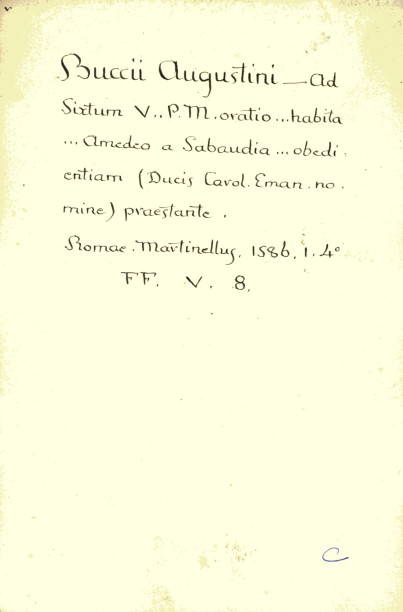 Buccii Augustini — ad
Sixtum V.. P. M. oratio ... habita
... Amedeo a Sabaudia ... obedi.
entiam (Ducis Carol. Eman. no.
mine) praestante.
Romae. Martinellus, 1586, 1. 4°
FF. V. 8.
C